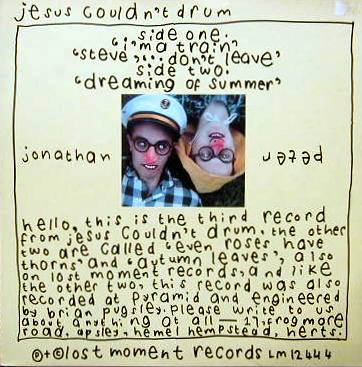 jesus couldn't drum
side one.
"i'm a train"
"steve,... don't leave"
side two.
"dreaming of summer"
jonathan
peter
hello, this is the third record
from jesus couldn't drum. the other
two are called 'even roses have
thorns' and 'autumn leaves', also
on lost moment records, and like
the other two, this record was also
recorded at pyramid and engineered
by brian pugsley. please write to us
about anything at all — 17, frogmore
road, apsley, hemel hempstead, herts.
℗+© lost moment records LM12444